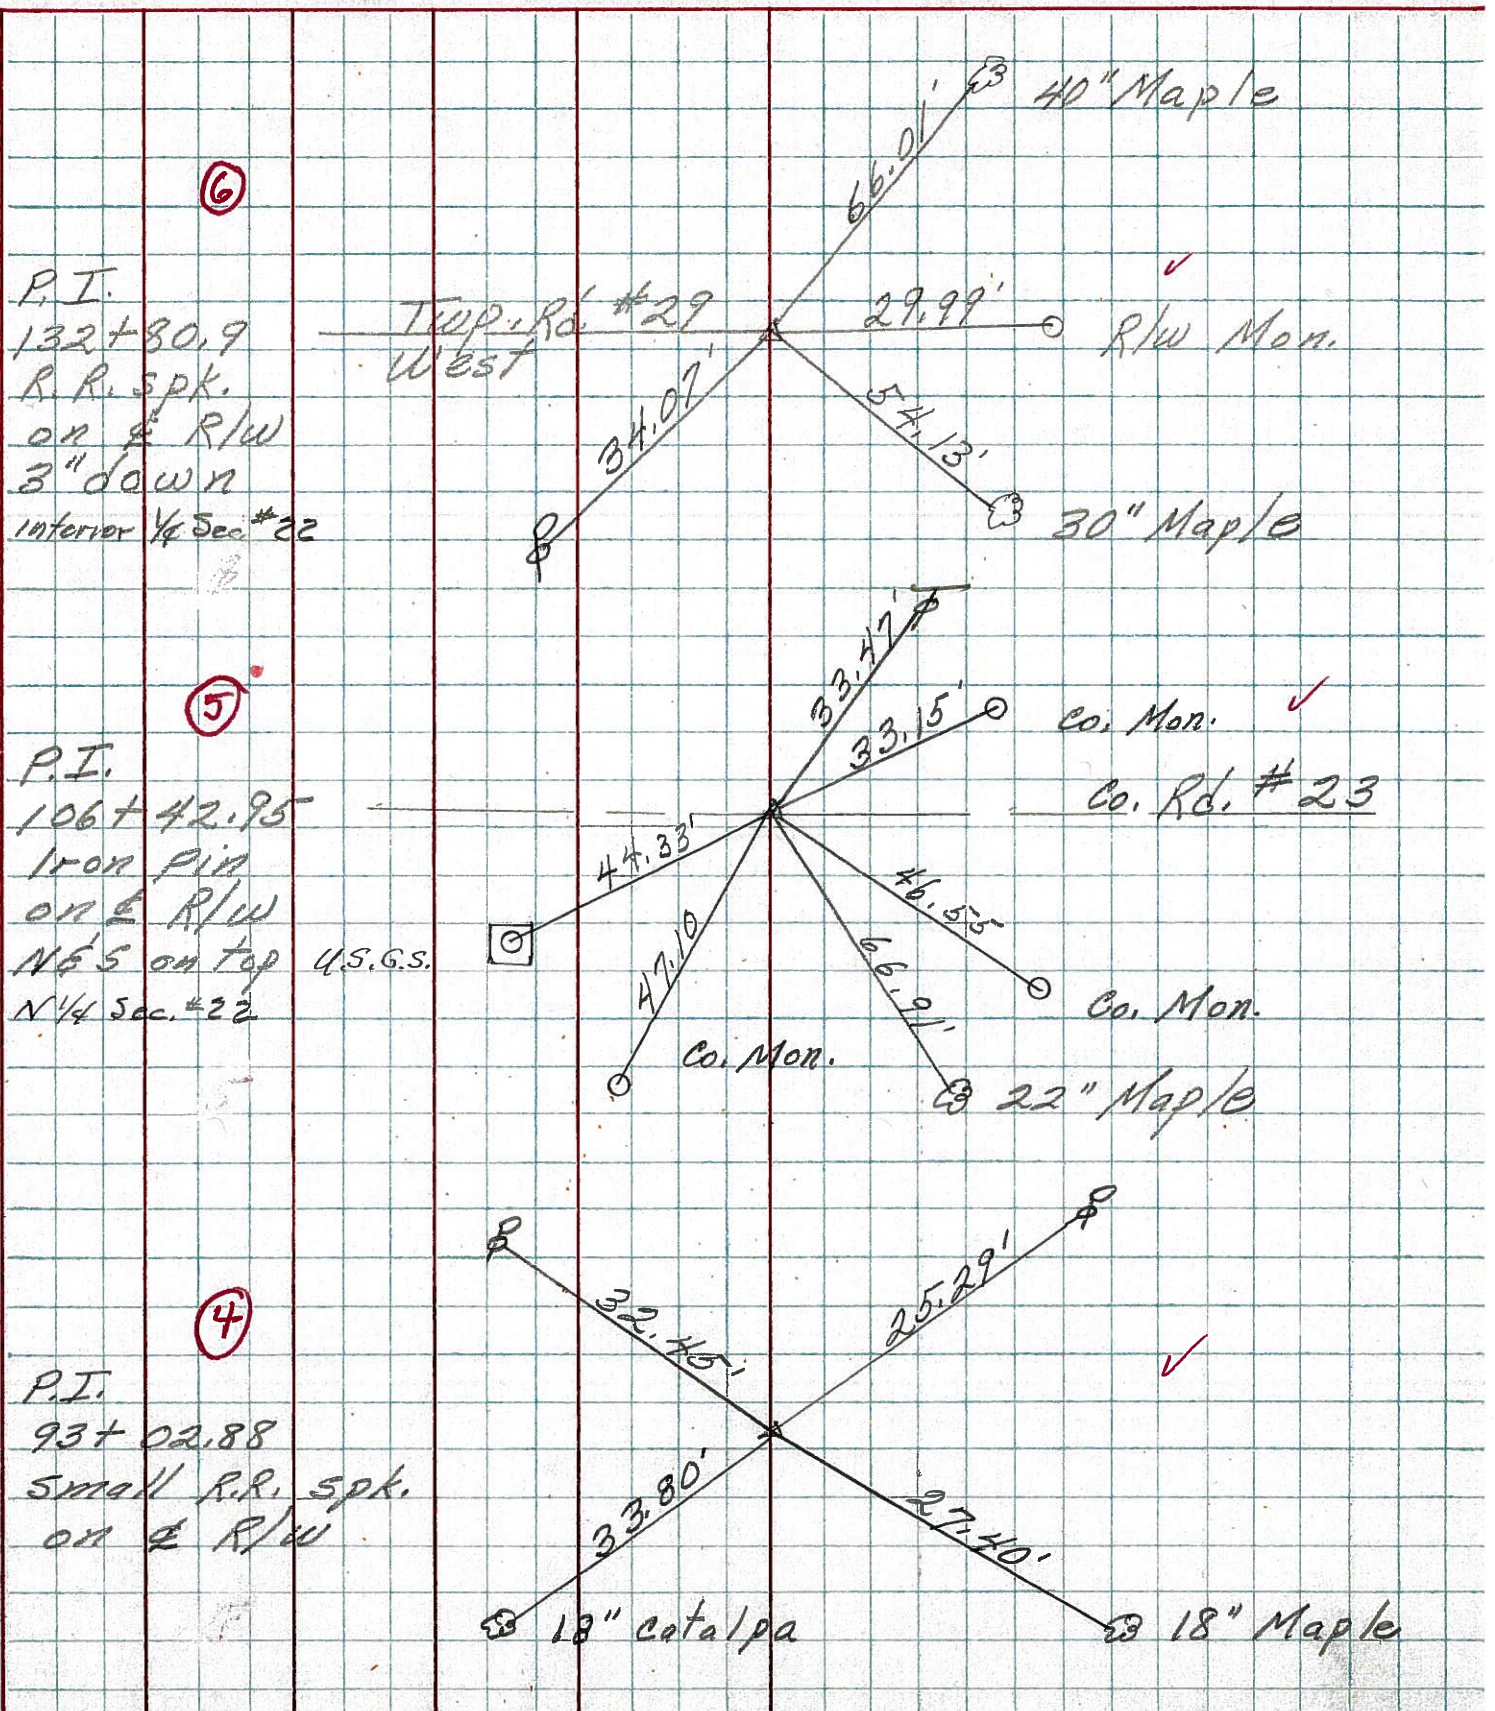 40" Maple
66.01'
6
P.I.
132+80.9
R.R. spk.
on ℄ R/W
3" down
Interior 1/4 Sec #22
Twp. Rd. #29
West
29.99'
R/W Mon.
34.07'
54.13'
30" Maple
5
P.I.
106+42.95
Iron Pin
on ℄ R/W
N&S on top
N 1/4 Sec. #22
33.47'
33.15'
Co. Mon.
Co. Rd. #23
44.33'
U.S.G.S.
47.10
Co. Mon.
46.55
Co. Mon.
66.91'
22" Maple
4
P.I.
93+02.88
Small R.R. spk.
on ℄ R/W
32.45'
25.29'
33.80'
27.40'
18" Catalpa
18" Maple